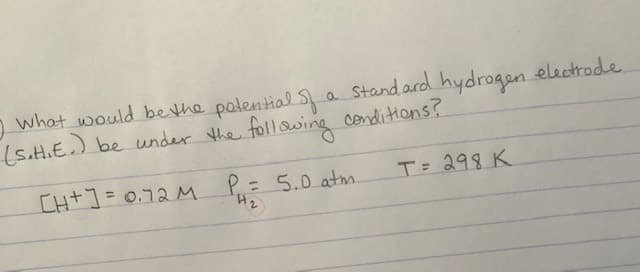 ) What would be the potential of a standard hydrogen electrode
(S.H.E.) be under the following conditions?
[H+] = 0.72 M P_H2 = 5.0 atm T = 298 K